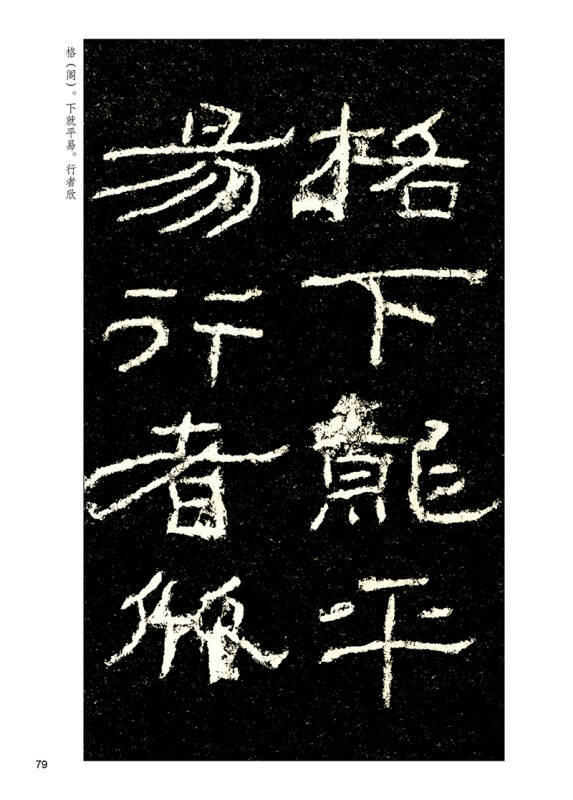 格下就平
易行者欣
格（阁）。下就平易。行者欣
79